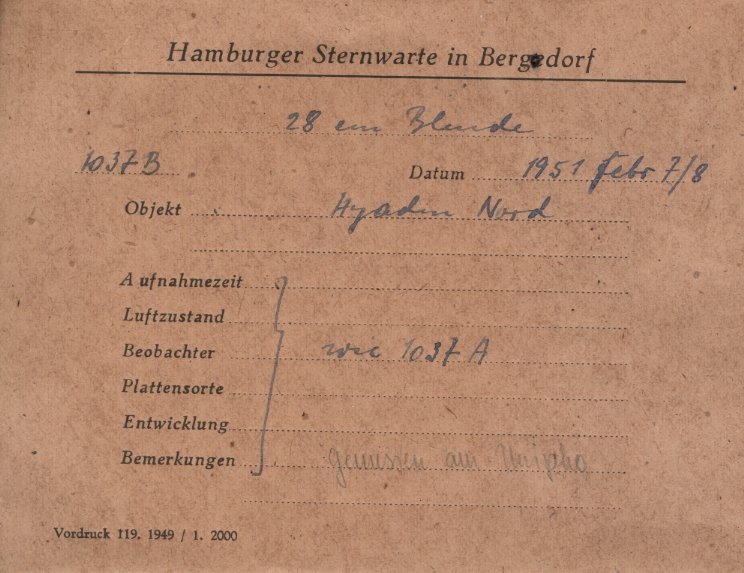 Hamburger Sternwarte in Bergedorf
28 cm Blende
1037B Datum 1951 Febr 7/8
Objekt Hyaden Nord
Aufnahmezeit
Luftzustand
Beobachter wie 1037 A
Plattensorte
Entwicklung
Bemerkungen gemessen am
Vordruck 119. 1949 / 1. 2000